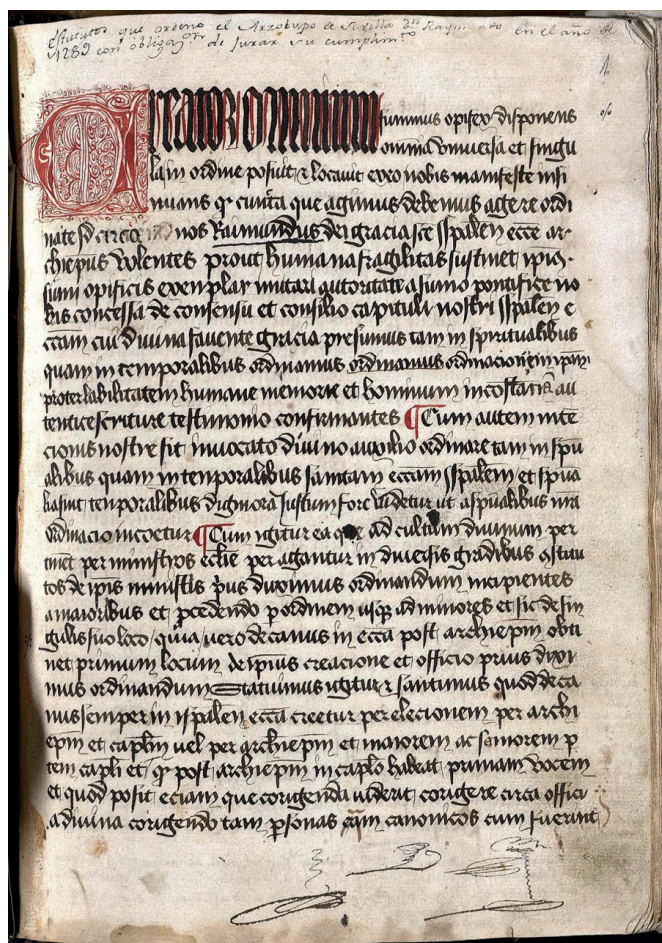 estatutos que ordeno el Arzobispo de Sevilla Dn Raymundo en el año de
1289 con obligaon de jurar su cumplimto
1
Creator omnium summus opifex disponens
omnia vniuersa et singu
la in ordine posuit & locauit ex eo nobis manifeste insi
nuans qr cuncta que agimus debemus agere ordi
nate nos Raimundus dei gracia sce Ispalen ecce ar
chiepus volentes prout humana fragilitas sustinet ipiq
sumi opificis exemplar imitari autoritate a sumo pontifice no
bis concessa de consensu et consilio capituli nostri Ispalen e
ccam cui diuina fauente gracia presumus tam in spiritualibus
quam in temporalibus ordinamus ordinamus ordinacionem ipam
propter labilitatem humane memorie et hominum incostaciã au
tentice scriture testimonio confirmantes Cum autem inte
cionis nostre sit inuocato diuino auxilio ordinare tam in spũ
alibus quam in temporalibus sanctam eccam Ispalem et spũa
lia sint temporalibus digniora Justum fore videtur ut a spũalibus nrã
ordinacio incoetur Cum ygitur ea que ad cultum diuinum per
tinet per ministros ecclie per agantur in diuersis gradibus ostitu
tos de ipis ministris prius duximus ordinandum incipientes
a maioribus et pcedendo p ordinem usqz ad minores et sic de sin
gulis suo loco quia uero decanus in ecca post archiepm obti
net primum locum de ipius creacione et officio prius duxi
mus ordinandum Statuimus ygitur & sanctimus quod deca
nus semper in ispalen ecca creetur per elecionem per archi
epm et caplm uel per archiepm et maiorem ac saniorem p
tem capli et qr post archiepm in caplo habeat primam vocem
et quod posit eciam que corigenda uiderit corigere circa offici
a diuina corigendo tam psonas qm canonicos cum fuerint